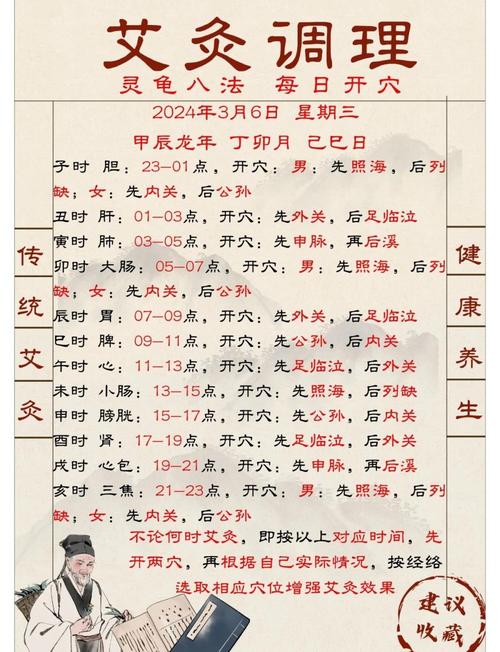 艾灸调理
灵龟八法 每日开穴
2024年3月6日 星期三
甲辰龙年 丁卯月 己巳日
子时 胆：23-01点，开穴：男：先照海，后列
缺；女：先内关，后公孙
丑时 肝：01-03点，开穴：先外关，后足临泣
寅时 肺：03-05点，开穴：先申脉，再后溪
卯时 大肠：05-07点，开穴：男：先照海，后列
缺；女：先内关，后公孙
辰时 胃：07-09点，开穴：先外关，后足临泣
巳时 脾：09-11点，开穴：先公孙，后内关
午时 心：11-13点，开穴：先足临泣，后外关
未时 小肠：13-15点，开穴：先照海，后列缺
申时 膀胱：15-17点，开穴：先公孙，后内关
酉时 肾：17-19点，开穴：先足临泣，后外关
戌时 心包：19-21点，开穴：先申脉，再后溪
亥时 三焦：21-23点，开穴：男：先照海，后列
缺；女：先内关，后公孙
不论何时艾灸，即按以上对应时间，先
开两穴，再根据自己实际情况，按经络
选取相应穴位增强艾灸效果
传统艾灸
健康养生
建议
收藏